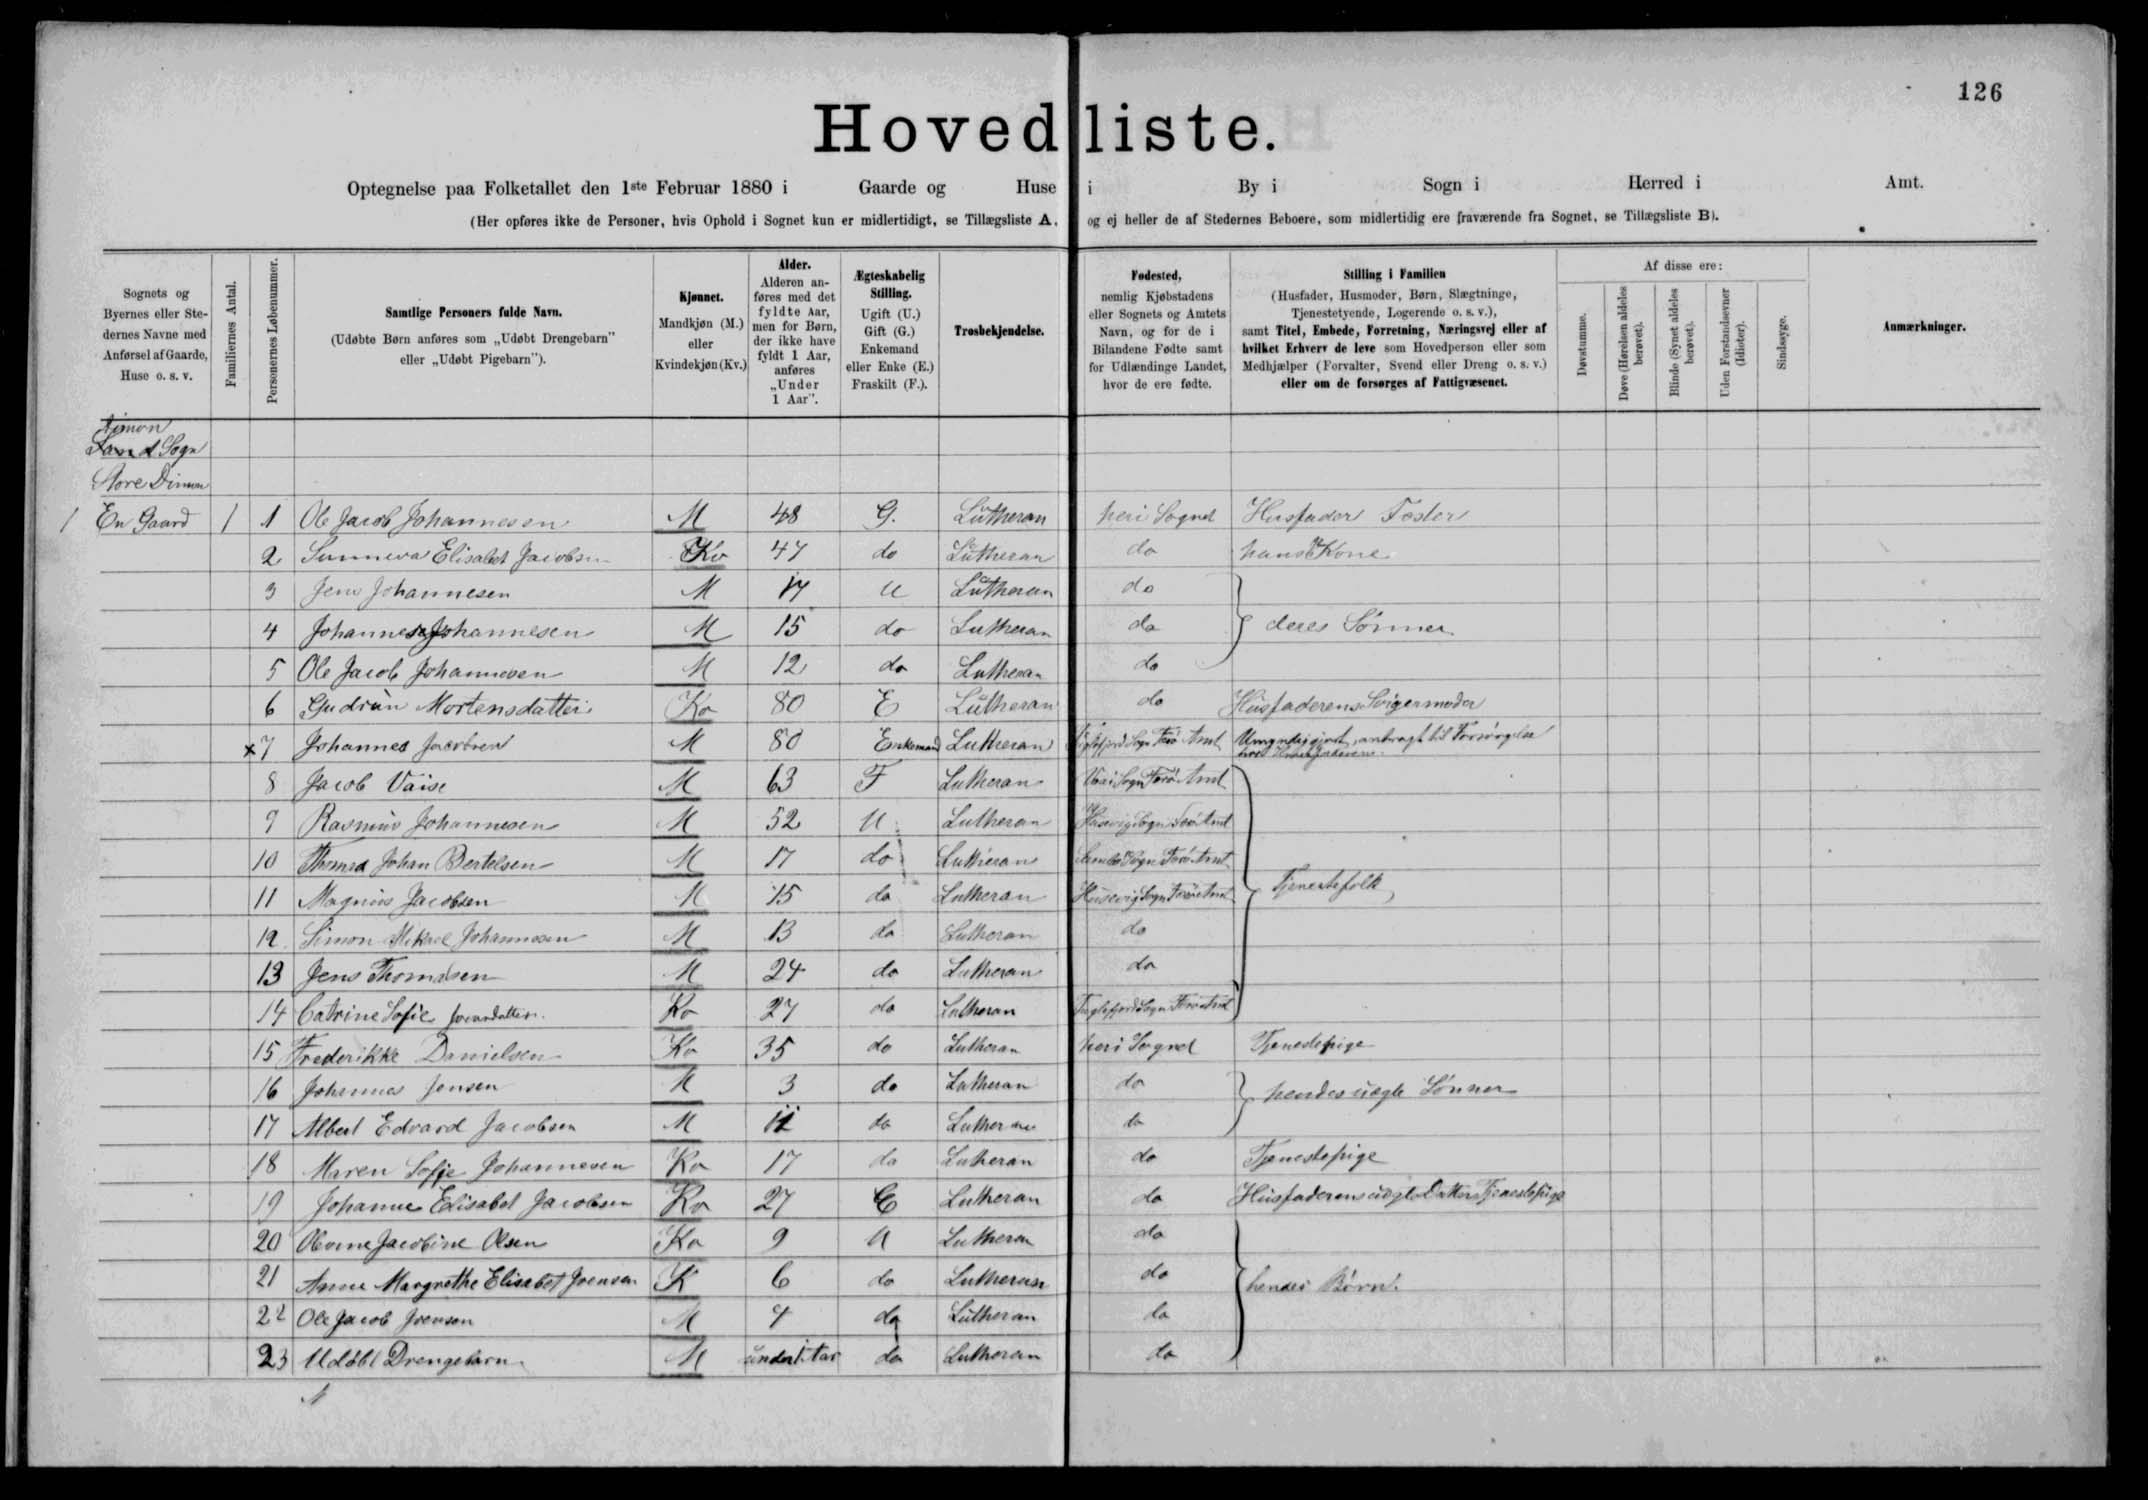 126
Hovedliste.
Optegnelse paa Folketallet den 1ste Februar 1880 i Gaarde og Huse i By i Sogn i Herred i Amt.
(Her opføres ikke de Personer, hvis Ophold i Sognet kun er midlertidigt, se Tillægsliste A, og ej heller de af Stedernes Beboere, som midlertidig ere fraværende fra Sognet, se Tillægsliste B).
Sognets og Byernes eller Stedernes Navne med Anførsel af Gaarde, Huse o. s. v.
Familiernes Antal.
Personernes Løbenummer.
Samtlige Personers fulde Navn.
(Udøbte Børn anføres som „Udøbt Drengebarn" eller „Udøbt Pigebarn").
Kjønnet.
Mandkjøn (M.) eller Kvindekjøn (Kv.)
Alder.
Alderen anføres med det fyldte Aar, men for Børn, der ikke have fyldt 1 Aar, anføres „Under 1 Aar".
Ægteskabelig Stilling.
Ugift (U.) Gift (G.) Enkemand eller Enke (E.) Fraskilt (F.).
Trosbekjendelse.
Fødested,
nemlig Kjøbstadens eller Sognets og Amtets Navn, og for de i Bilandene Fødte samt for Udlændinge Landet, hvor de ere fødte.
Stilling i Familien
(Husfader, Husmoder, Børn, Slægtninge, Tjenestetyende, Logerende o. s. v.),
samt Titel, Embede, Forretning, Næringsvej eller af hvilket Erhverv de leve som Hovedperson eller som Medhjælper (Forvalter, Svend eller Dreng o. s. v.) eller om de forsørges af Fattigvæsenet.
Af disse ere:
Døvstumme.
Døve (Hørelsen aldeles berøvet).
Blinde (Synet aldeles berøvet).
Uden Forstandsevner (Idioter).
Sindssyge.
Anmærkninger.
Sand Sogn
Store Dimon
1 En Gaard 1 1 Ole Jacob Johannesen M 48 G. Lutheran heri Sognet Husfader Fæster
2 Sunneva Elisabet Jacobsen Kv 47 do Lutheran do hans Kone
3 Jens Johannesen M 17 U Lutheran do
4 Johannes Johannesen M 15 do Lutheran do deres Sønner
5 Ole Jacob Johannesen M 12 do Lutheran do
6 Gudrun Mortensdatter Kv 80 E Lutheran do Husfaderens Svigermoder
x 7 Johannes Jacobsen M 80 Enkemand Lutheran Sogn Færø Amt Umyndiggjort, anbragt til Forsørgelse
8 Jacob Vaise M 63 F Lutheran Sogn Færø Amt
9 Rasmus Johannesen M 52 U Lutheran Husevig Sogn Færø Amt
10 Thomas Johan Bertelsen M 17 do Lutheran Sogn Færø Amt
11 Magnus Jacobsen M 15 do Lutheran Husevig Sogn Færø Amt Tjenestefolk
12. Simon Mikael Johannesen M 13 do Lutheran do
13 Jens Thomasen M 24 do Lutheran do
14 Catrine Sofie Joensdatter. Kv 27 do Lutheran Fuglefjord Sogn Færø Amt
15 Frederikke Danielsen Kv 35 do Lutheran heri Sognet Tjenestepige
16 Johannes Jensen M 3 do Lutheran do hendes uægte Sønner
17 Albert Edvard Jacobsen M do Lutheran do
18 Maren Sofie Johannesen Kv 17 do Lutheran do Tjenestepige
19 Johanne Elisabet Jacobsen Kv 27 E Lutheran do Husfaderens uægte Datter Tjenestepige
20 Jacobine Olsen Kv 9 U Lutheran do
21 Anne Margrethe Elisabet Joensen K 6 do Lutheran do hendes Børn.
22 Ole Jacob Joensen M 4 do Lutheran do
23 Udøbt Drengebarn M under 1 Aar do Lutheran do